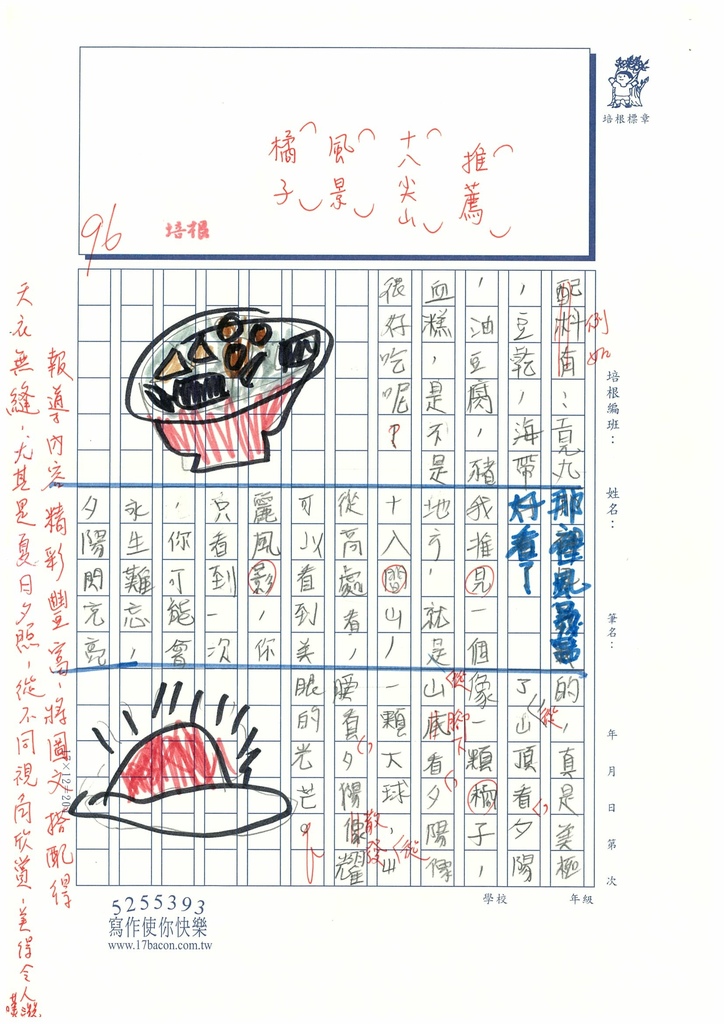 培根標章
推薦
十八尖山
風景
橘子
96
培根
配料有：貢丸
，豆乾，海帶
，油豆腐，豬
血糕，是不是
很好吃呢？
例如
那裡風景
好看了
我推見一個
地方，就是
十八間山，
從高處看，
可以看到美
麗風影，你
只看到一次
，你可能會
永生難忘，
夕陽閃亮
亮
的，真是美極
了山頂看夕陽
像一顆橘子，
山底看夕陽像
一顆大球，山
腰負夕陽像耀
眼的光芒。
從
從
腳下
從
散發
報導內容精彩豐富，將圖文搭配得
天衣無縫，尤其是夏日夕照，從不同視角欣賞，美得令人
培根編班：
姓名：
筆名：
年 月 日 第 次
學校 年級
5255393
寫作使你快樂
www.17bacon.com.tw